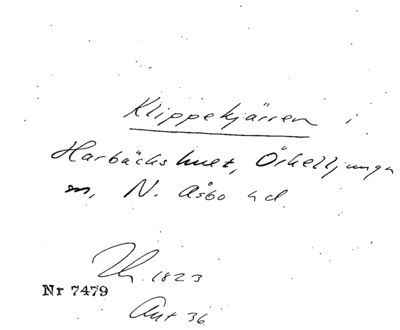 Klippekjärren i
Harbäckshult, Örkelljunga
sn, N. Åsbo hd
1823
Nr 7479
Ant 36